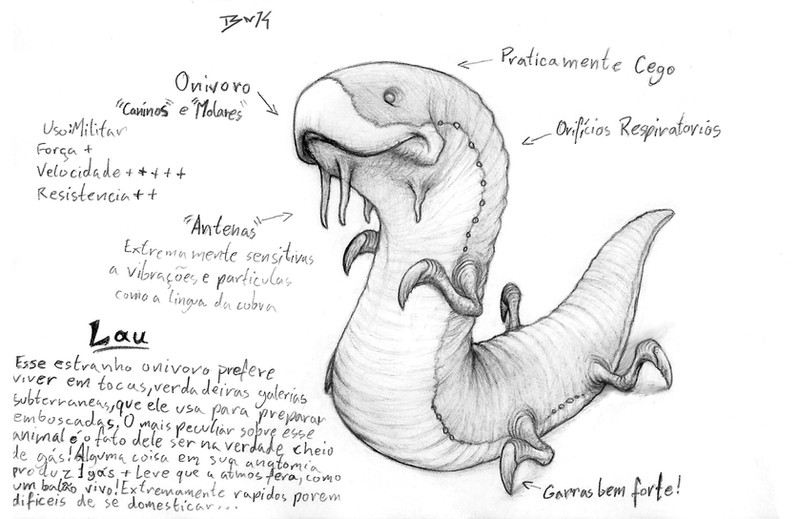 Praticamente Cego
Onivoro
"Caninos" e "Molares"
Orifícios Respiratorios
Uso: Militar
Força +
Velocidade +++++
Resistencia ++
"Antenas"
Extremamente sensitivas
a vibrações e particulas
como a lingua da cobra
Lau
Esse estranho onivoro prefere
viver em tocas, verdadeiras galerias
subterraneas, que ele usa para preparar
emboscadas, O mais peculiar sobre esse
animal é o fato dele ser na verdade cheio
de gás! Alguma coisa em sua anatomia
produz 1 gás + Leve que a atmosfera, como
um balão vivo! Extremamente rapidos porem
dificeis de se domesticar...
Garras bem forte!